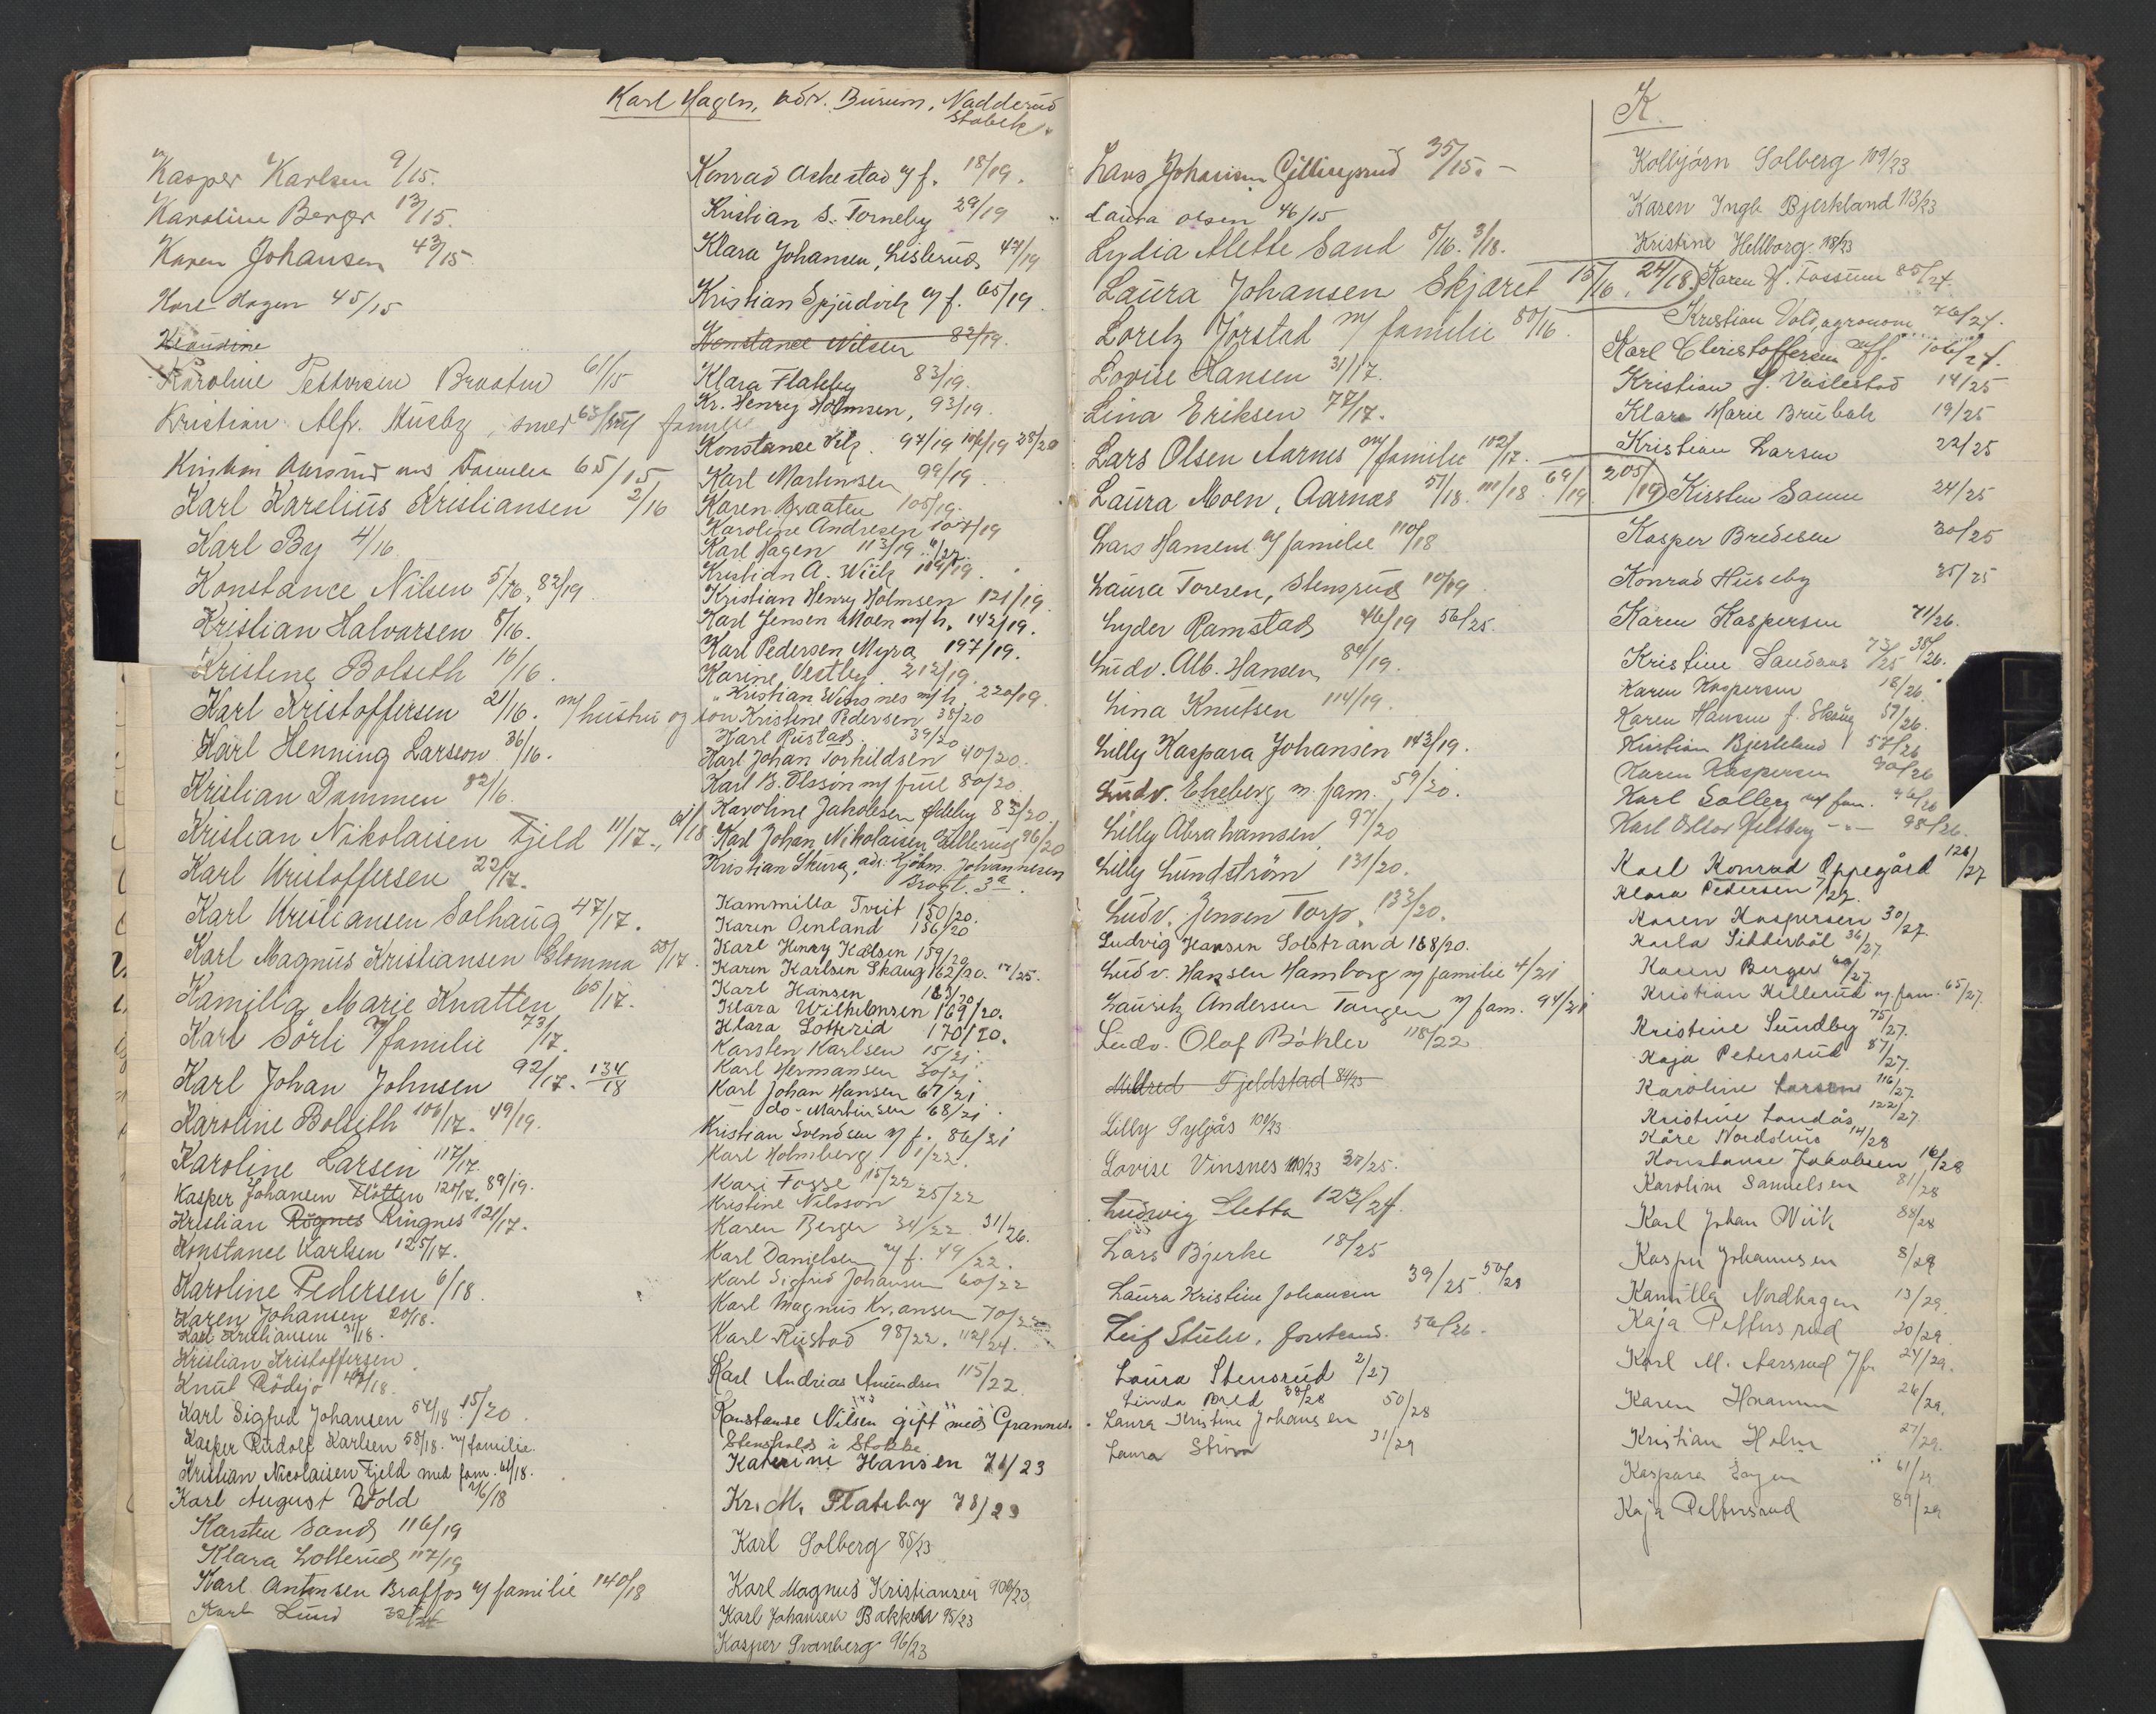 Karl Hagen, adr. Bærum, Nadderud
Stabek.
Kasper Karlsen 9/15.
Karoline Berger 13/15.
Karen Johansen 43/15
Karl Hagen 45/15
Klaudine
Karoline Pettersen Braaten 61/15
Kristian Alfr. Huseby, smed 63/15 m/ familie
Kristian Aarsrud m/ Familie 65/15
Karl Karelius Kristiansen 2/16
Karl By 4/16
Konstance Nilsen 5/16, 82/19
Kristian Halvarsen 8/16.
Kristine Bolseth 16/16.
Karl Kristoffersen 21/16. m/ hustru og søn
Karl Henning Larsson 36/16.
Kristian Dammen 82/16.
Kristian Nikolaisen Fjeld 11/17., 61/18
Karl Kristoffersen 22/17.
Karl Kristiansen Solhaug 47/17.
Karl Magnus Kristiansen Glomma 50/17
Kamilla Marie Knatten 65/17.
Karl Sörli m/ familie 73/17.
Karl Johan Johnsen 92/17. 134/18
Karoline Bolseth 106/17. 49/19.
Karoline Larsen 117/17.
Kasper Johansen Flötten 120/17. 89/19.
Kristian Rognes Ringnes 121/17.
Konstance Karlsen 125/17.
Karoline Pedersen 6/18.
Karen Johansen 20/18.
Karl Kristiansen /18.
Kristian Kristoffersen
Knut Rödsjö 47/18.
Karl Sigfred Johansen 54/18. 15/20
Kasper Rudolf Karlsen 58/18. m/ familie.
Kristian Nicolaisen Fjeld med fam. 61/18.
Karl August Wold 76/18
Karsten Sand 116/19
Klara Lotterud 117/19
Karl Antonsen Braffos m/ familie 140/18
Karl Lund
Konrad Askestad m/ f. 18/19.
Kristian S. Torneby 29/19
Klara Johansen, Lislerud 47/19
Kristian Gjudvik m/ f. 65/19.
Konstance Nilsen 82/19.
Klara Flateby 83/19.
Kr. Henry Holmsen, 93/19.
Konstance 97/19 106/19 28/20
Karl Martinsen 99/19.
Karen Braaten 105/19.
Karoline Andresen 107/19
Karl Hagen 113/19. 6/22.
Kristian A. Wiik 119/19.
Kristian Henry Holmsen 121/19.
Karl Jensen Moen m/ h. 142/19.
Karl Pedersen Myra 197/19.
Karine Vestby. 212/19.
Kristian Winsnes m/ h. 220/19.
Kristine Pedersen 38/20
Karl Rustad. 39/20
Karl Johan Torkildsen 40/20.
Karl B. Olsson m/ frue 80/20.
Karoline Jakobsen Ødeby 83/20.
Karl Johan Nikolaisen Gullerud 96/20
Kristian Skaug, adr. Hjalm. Johannesen
Brogt. 3a.
Kammilla Tveit 150/20.
Karen Oenland 156/20
Karl Henry Karlsen 159/20
Karen Karlsen Skaug 162/20. 17/25.
Karl Hansen 163/20
Klara Wilhelmsen 169/20.
Klara Lotterid 170/20.
Karsten Karlsen 15/21.
Karl Hermansen 30/21.
Karl Johan Hansen 67/21
— do - Martinsen 68/21.
Kristian Svendsen m/ f. 86/21
Karl Holmberg. 1/22.
Kari Fosse 15/22
Kristine Nilsson 25/22
Karen Berger 34/22. 31/26.
Karl Danielsen m/ f. 49/22.
Karl Sigfrid Johansen 60/22
Karl Magnus Kr.ansen 70/22
Karl Rustad 98/22. 112/24.
Karl Andreas Amundsen 115/22
Konstanse Nilsen gift med Grannes.
Stensholds i Stokke
Katerine Hansen 71/23
Kr. M. Flateby 78/23
Karl Solberg 85/23
Karl Magnus Kristiansen 90/23
Karl Johansen Bakken 95/23
Kasper Svanberg 96/23
Lars Johansen Gillingsrud 35/15. -
Laura Olsen 46/15
Lydia Alette Sand 5/16. 3/18.
Laura Johansen Skjæret 15/16. 24/18.
Loretz Jörstad m/ familie 80/16.
Lovise Hansen 31/17.
Lina Eriksen 77/17.
Lars Olsen Aarnes m/ familie 102/17.
Laura Moen, Aarnes 57/18. 111/18. 69/19. 205/19
Lars Hansen m/ familie 110/18
Laura Toresen, Stensrud 10/19
Lyder Ramstad 46/19 56/25.
Ludv. Alb. Hansen 84/19.
Lina Knutsen 114/19.
Lilly Kaspara Johansen 143/19.
Ludv. Ekeberg m. fam. 59/20.
Lilly Abrahamsen 97/20
Lilly Lundström 131/20.
Ludv. Jensen Torp. 133/20.
Ludvig Hansen Solstrand 168/20.
Ludv. Hansen Hamborg m/ familie 4/21
Lauritz Andersen Tangen m/ fam. 94/21
Ludv. Olaf Böhler 118/22
Mildred Fjeldstad 84/23
Lilly Syljås 100/23
Lovise Vinsnes 110/23 37/25.
Ludvig Sletta 123/24.
Lars Bjerke 18/25
Laura Kristine Johansen 39/25. 50/28
Leif Stuler, 56/26.
Laura Stensrud 2/27
Linda Bold 38/28
Laura Kristine Johansen 50/28
Laura Ström 31/29
K.
Kolbjörn Solberg 109/23
Karen Ingb Bjerkland 113/23
Kristine Hellborg 118/23
Karen K. Fossum 85/24.
Kristian Vold, agronom 76/24.
Karl Christoffersen m/f. 106/24.
Kristian J. Vaslestad 14/25
Klara Marie Brubak 19/25
Kristian Larsen 22/25
Kirsten Sanne 24/25
Kasper Bredesen 30/25
Konrad Huseby 35/25
Karen Kaspersen 71/26.
Kristine Sandaas 73/25 38/26.
Karen Kaspersen 18/26.
Karen Hansen f. Skaug 57/26.
Kristian Bjerkeland 58/26
Karen Kaspersen 90/26
Karl Solberg m/ fam. 96/26
Karl Oskar Gultberg -"- 98/26.
Karl Konrad Oppegård 126/27
Klara Pedersen 7/27.
Karen Kaspersen 30/27.
Karla Sitterböl 36/27.
Karen Berger 60/27
Kristian Killerud m. fam. 65/27.
Kristine Sundby 75/27.
Kaja Petersrud 87/27.
Karoline Larsen 116/27.
Kristine Landås 122/27.
Kåre Nordshus 14/28
Konstanse Jakobsen 16/28
Karoline Samuelsen 81/28
Karl Johan Wiik 88/28
Kasper Johannesen 8/29
Kamilla Nordhagen 13/29.
Kaja Pettersrud 20/29
Karl M. Aarsrud m/ fa 24/29.
Karen 26/29.
Kristian Holm 27/29.
Kaspara Hagen 61/29
Kaja Pettersrud 89/29